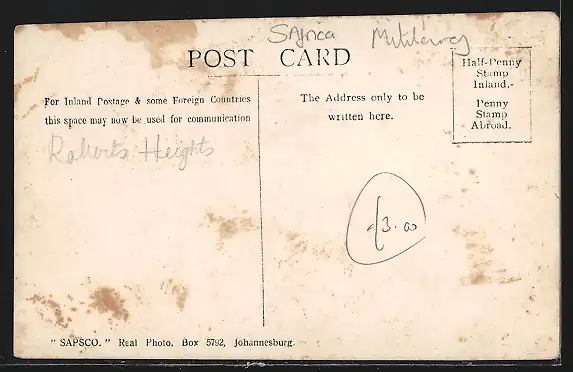 SAfrica Military
POST CARD
Half-Penny
Stamp
Inland.-
Penny
Stamp
Abroad.
For Inland Postage & some Foreign Countries
this space may now be used for communication
The Address only to be
written here.
Roberts Heights
£3.00
"SAPSCO." Real Photo. Box 5792, Johannesburg.